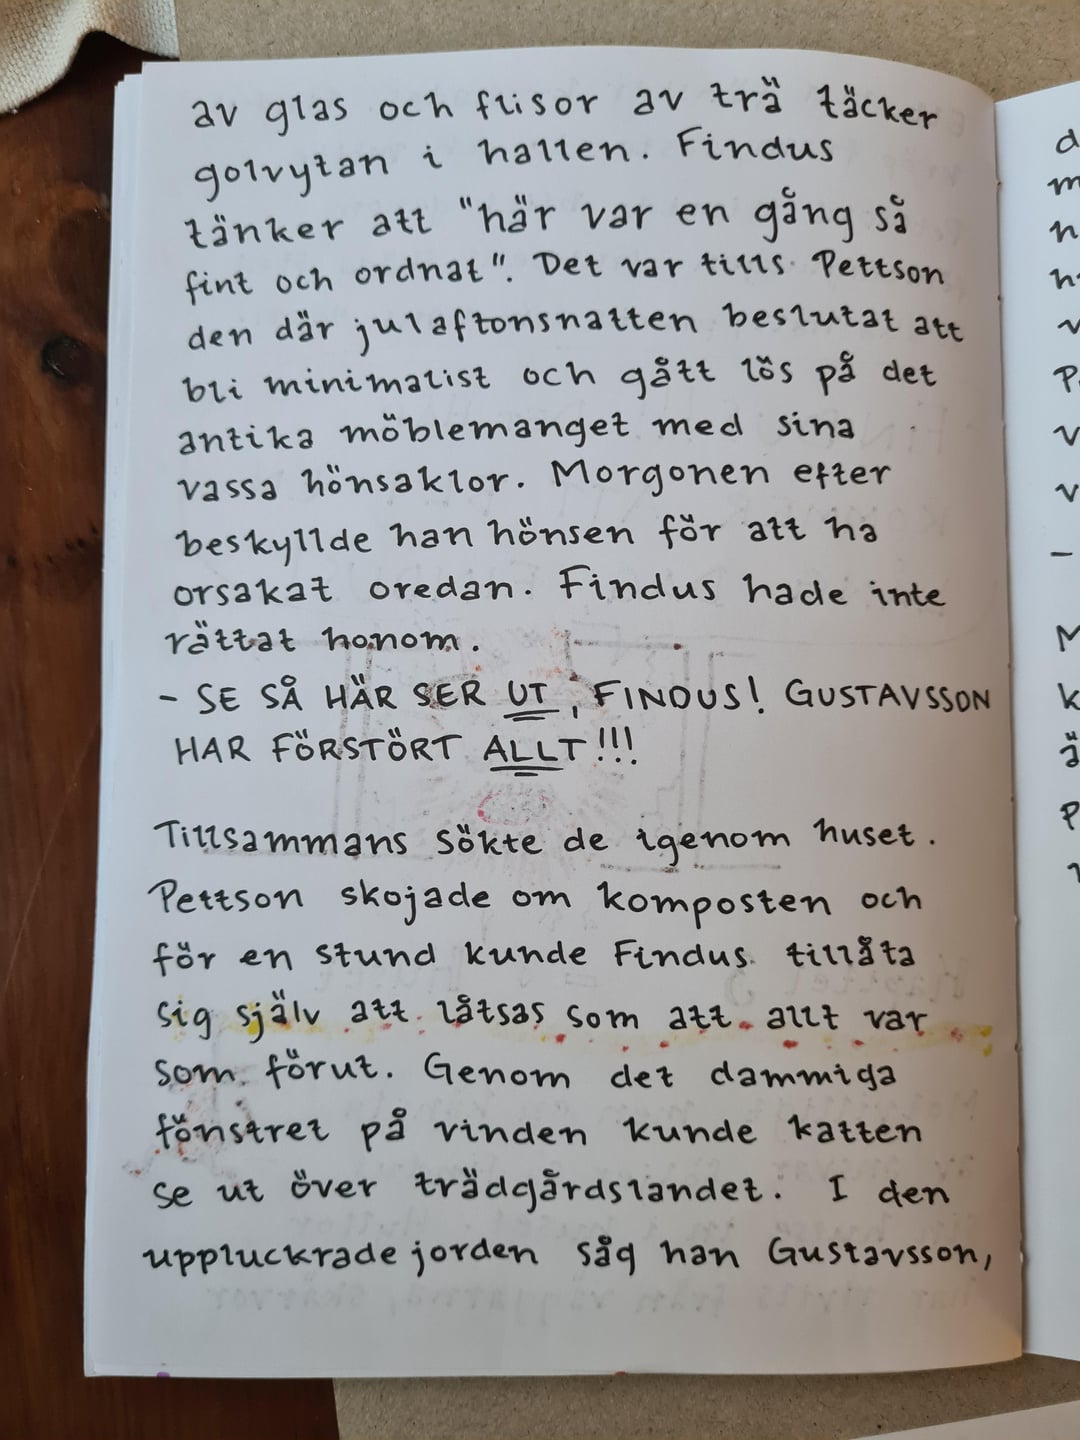 av glas och flisor av trä täcker
golvytan i hallen. Findus
tänker att "här var en gång så
fint och ordnat". Det var tills Pettson
den där julaftonsnatten beslutat att
bli minimalist och gått lös på det
antika möblemanget med sina
vassa hönsaklor. Morgonen efter
beskyllde han hönsen för att ha
orsakat oredan. Findus hade inte
rättat honom.
- SE SÅ HÄR SER UT, FINDUS! GUSTAVSSON
HAR FÖRSTÖRT ALLT!!!
Tillsammans sökte de igenom huset.
Pettson skojade om komposten och
för en stund kunde Findus tillåta
sig själv att låtsas som att allt var
som förut. Genom det dammiga
fönstret på vinden kunde katten
se ut över trädgårdslandet. I den
uppluckrade jorden såg han Gustavsson,